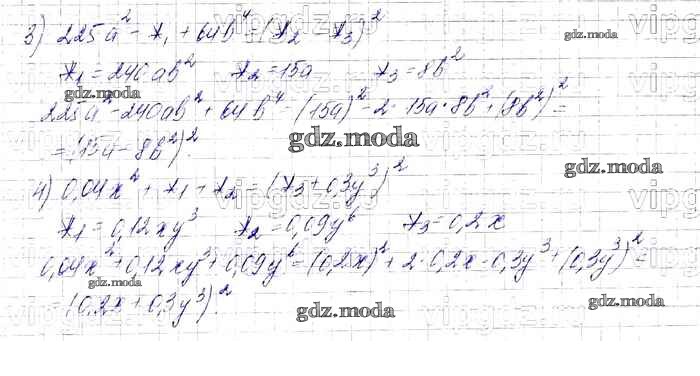 3) 225a² - *₁ + 64b⁴ = (*₂ - *₃)²
*₁ = 240ab² *₂ = 15a *₃ = 8b²
225a² - 240ab² + 64b⁴ = (15a)² - 2·15a·8b² + (8b²)² =
= (15a - 8b²)².
4) 0,04x² + *₁ + *₂ = (*₃ + 0,3y³)²
*₁ = 0,12xy³ *₂ = 0,09y⁶ *₃ = 0,2x
0,04x² + 0,12xy³ + 0,09y⁶ = (0,2x)² + 2·0,2x·0,3y³ + (0,3y³)² =
= (0,2x + 0,3y³)².
gdz.moda
gdz.moda
gdz.moda
gdz.moda
gdz.moda
gdz.moda
gdz.moda